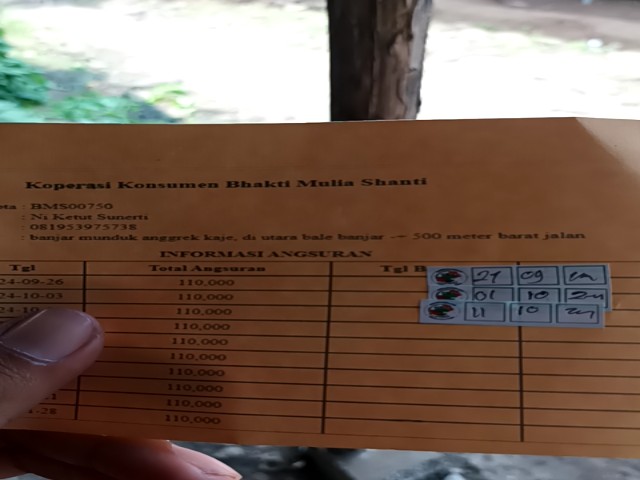 Koperasi Konsumen Bhakti Mulia Shanti
ota : BMS00750
: Ni Ketut Sunerti
: 081953975738
: banjar munduk anggrek kaje, di utara bale banjar -+ 500 meter barat jalan
INFORMASI ANGSURAN
Tgl Total Angsuran Tgl B
24-09-26 110,000 27 09
24-10-03 110,000 01 10
24-10 110,000 11 10
110,000
110,000
110,000
110,000
110,000
1 110,000
-28 110,000